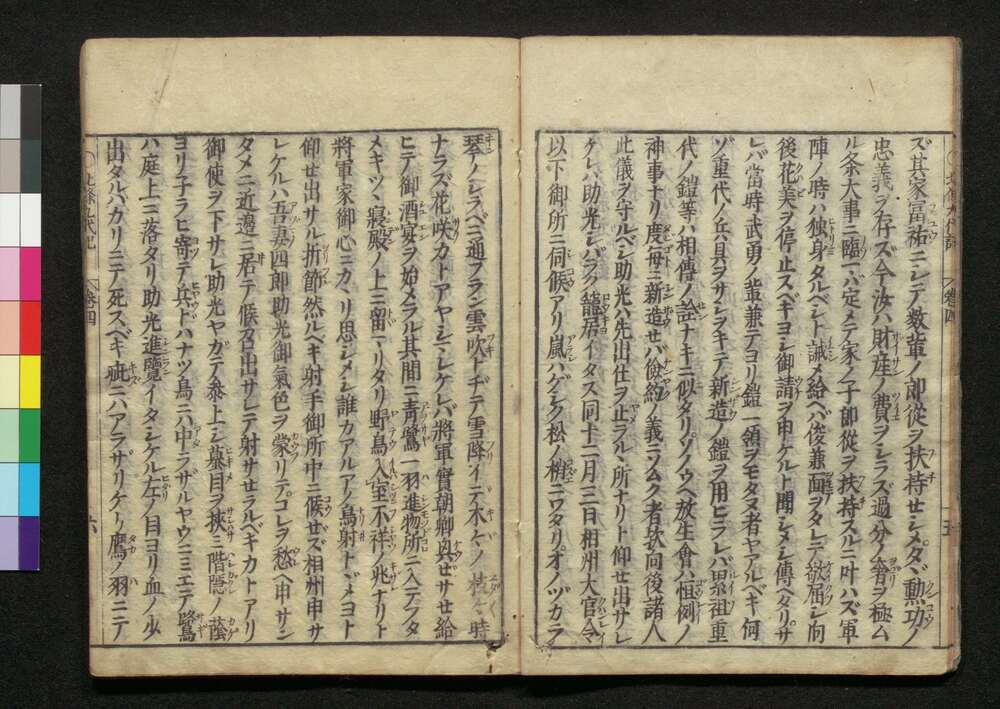 ズ其家冨祐ニシテ数輩ノ郎從ヲ扶持セシメタヾ勲功ノ
忠義ヲ存ズ今汝ハ財産ノ費ヲシラズ過分ノ奢ヲ極ム
ル条大事ニ臨ニハ定メテ家ノ子郎從ヲ扶持スルニ叶ハズ軍
陣ノ時ハ独身タルベシト誡メ給ヘバ俊兼面ヲタレテ欲屈シ向
後花美ヲ停止スヘキヨシ御請ヲ申ケルト聞シメシ傳ヘタリサ
レバ當時武勇ノ輩兼テヨリ鎧一領ヲモタヌ者ヤアルベキ何
ゾ重代ノ兵具ヲサシヲキテ新造ノ鎧ヲ用ヒラレバ累祖重
代ノ鎧等ハ相傳ノ詮ナキニ似タリソノウヘ放生會ハ恒例ノ
神事ナリ度毎ニ新造セバ儉約ノ義ニソムク者欤向後諸人
此儀ヲ守ルベシ助光ハ先出仕ヲ止ラルヽ所ナリト仰セ出サレ
ケレハ助光シバラク籠居イタス同十二月三日相州大官令
以下御所ニ伺候アリ嵐ハゲシク松ノ梢ニワタリオノヅカラ
琴ノシラベニ通フラン雲吹トヂテ雪降イデ木々ノ枝々時
ナラズ花咲カトアヤシマレケレバ將軍實朝卿興ゼサセ給
ヒテ御酒宴ヲ始メラル其間ニ青鷺一羽進物所ニ入テヲタ
メキツヽ寝殿ノ上ニ留マリタリ野鳥入室不祥ノ兆ナリト
將軍家御心ニカヽリ思シメシ誰カアルアノ鳥射トヾメヨト
仰セ出サル折節然ルベキ射手御所中ニ候セズ相州申サ
レケルハ吾妻四郎助光御氣色ヲ蒙リテコレヲ愁ヘ申サン
タメニ近邊ニ居テ候召出サレテ射サセラルベキカトアリ
御使ヲ下サレ助光ヤガテ參上シ蟇目ヲ挾ミ階隠ノ蔭
ヨリ子ラヒ寄テ兵トハナツ鳥ニハ中ラザルヤウニミエテ鷺
ハ庭上ニ落タリ助光進覽イタシケル左ノ目ヨリ血ノ少
出タルバカリニテ死スベキ疵ニハアラサリケリ鷹ノ羽ニテ
北條九代記
巻四
五
六